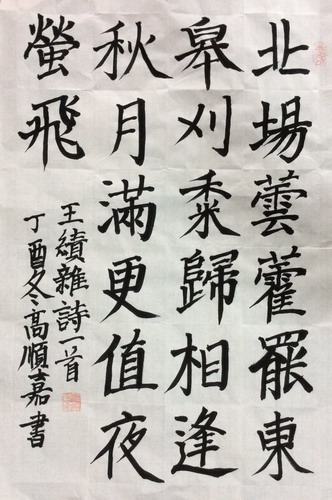 北場蕓藿罷東
皋刈黍歸相逢
秋月滿更值夜
螢飛
王績雜詩一首
丁酉冬高順嘉書